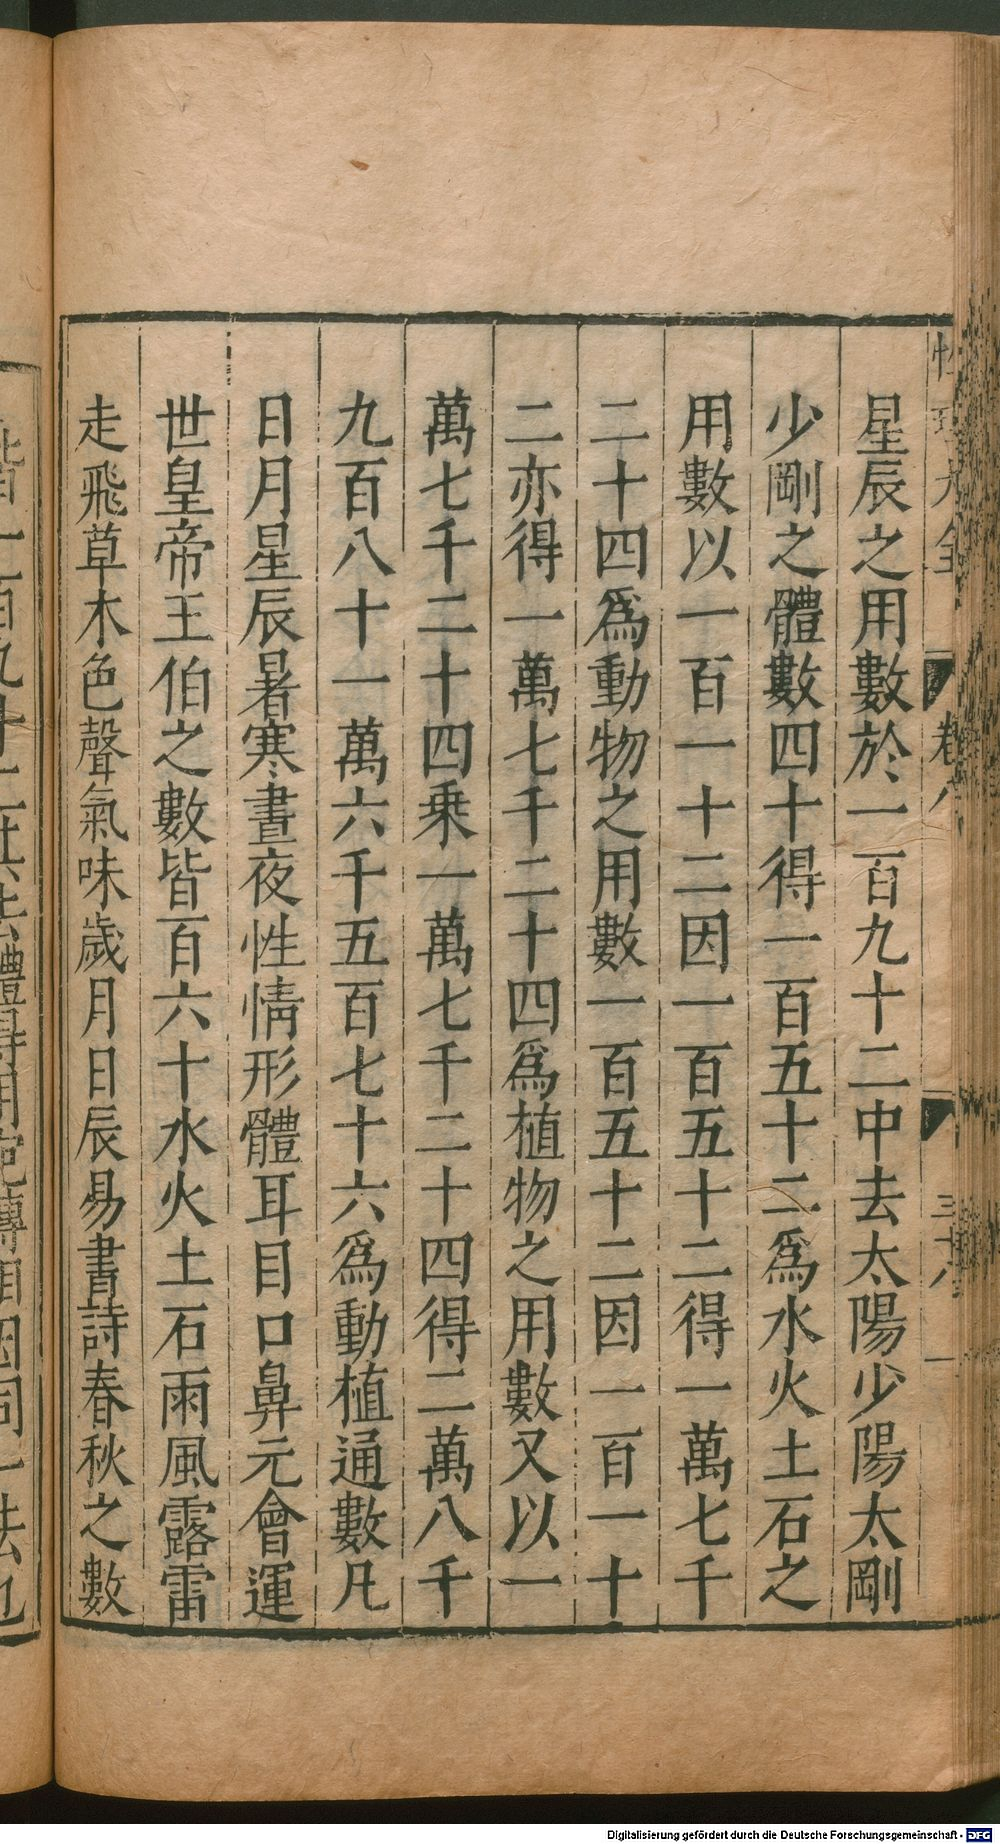 星辰之用數於一百九十二中去太陽少陽太剛
少剛之體數四十得一百五十二爲水火土石之
用數以一百一十二因一百五十二得一萬七千
二十四爲動物之用數一百五十二因一百一十
二亦得一萬七千二十四爲植物之用數又以一
萬七千二十四乗一萬七千二十四得二萬八千
九百八十一萬六千五百七十六爲動植通數凡
日月星辰暑寒晝夜性情形體耳目口鼻元會運
世皇帝王伯之數皆百六十水火土石雨風露雷
走飛草木色聲氣味歲月日辰易書詩春秋之數
卷八
三十八
Digitalisierung gefördert durch die Deutsche Forschungsgemeinschaft - DFG